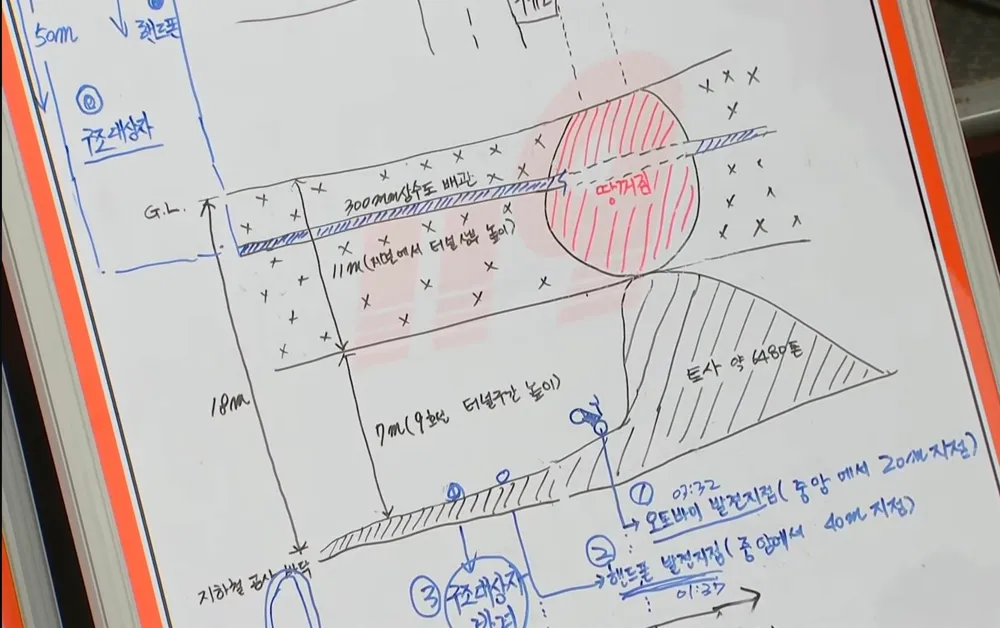 50m
핸드폰
구조대상자
G.L.
300mm상수도 배관
땅꺼짐
11m(지면에서 터널상부 높이)
18m
7m(9호선 터널구간 높이)
토사 약 6480톤
① 03:32
오토바이 발견지점(중앙에서 20m지점)
② 핸드폰 발견지점(중앙에서 40m지점)
01:37
③ 구조대상자
발견
지하철 공사 바닥
119